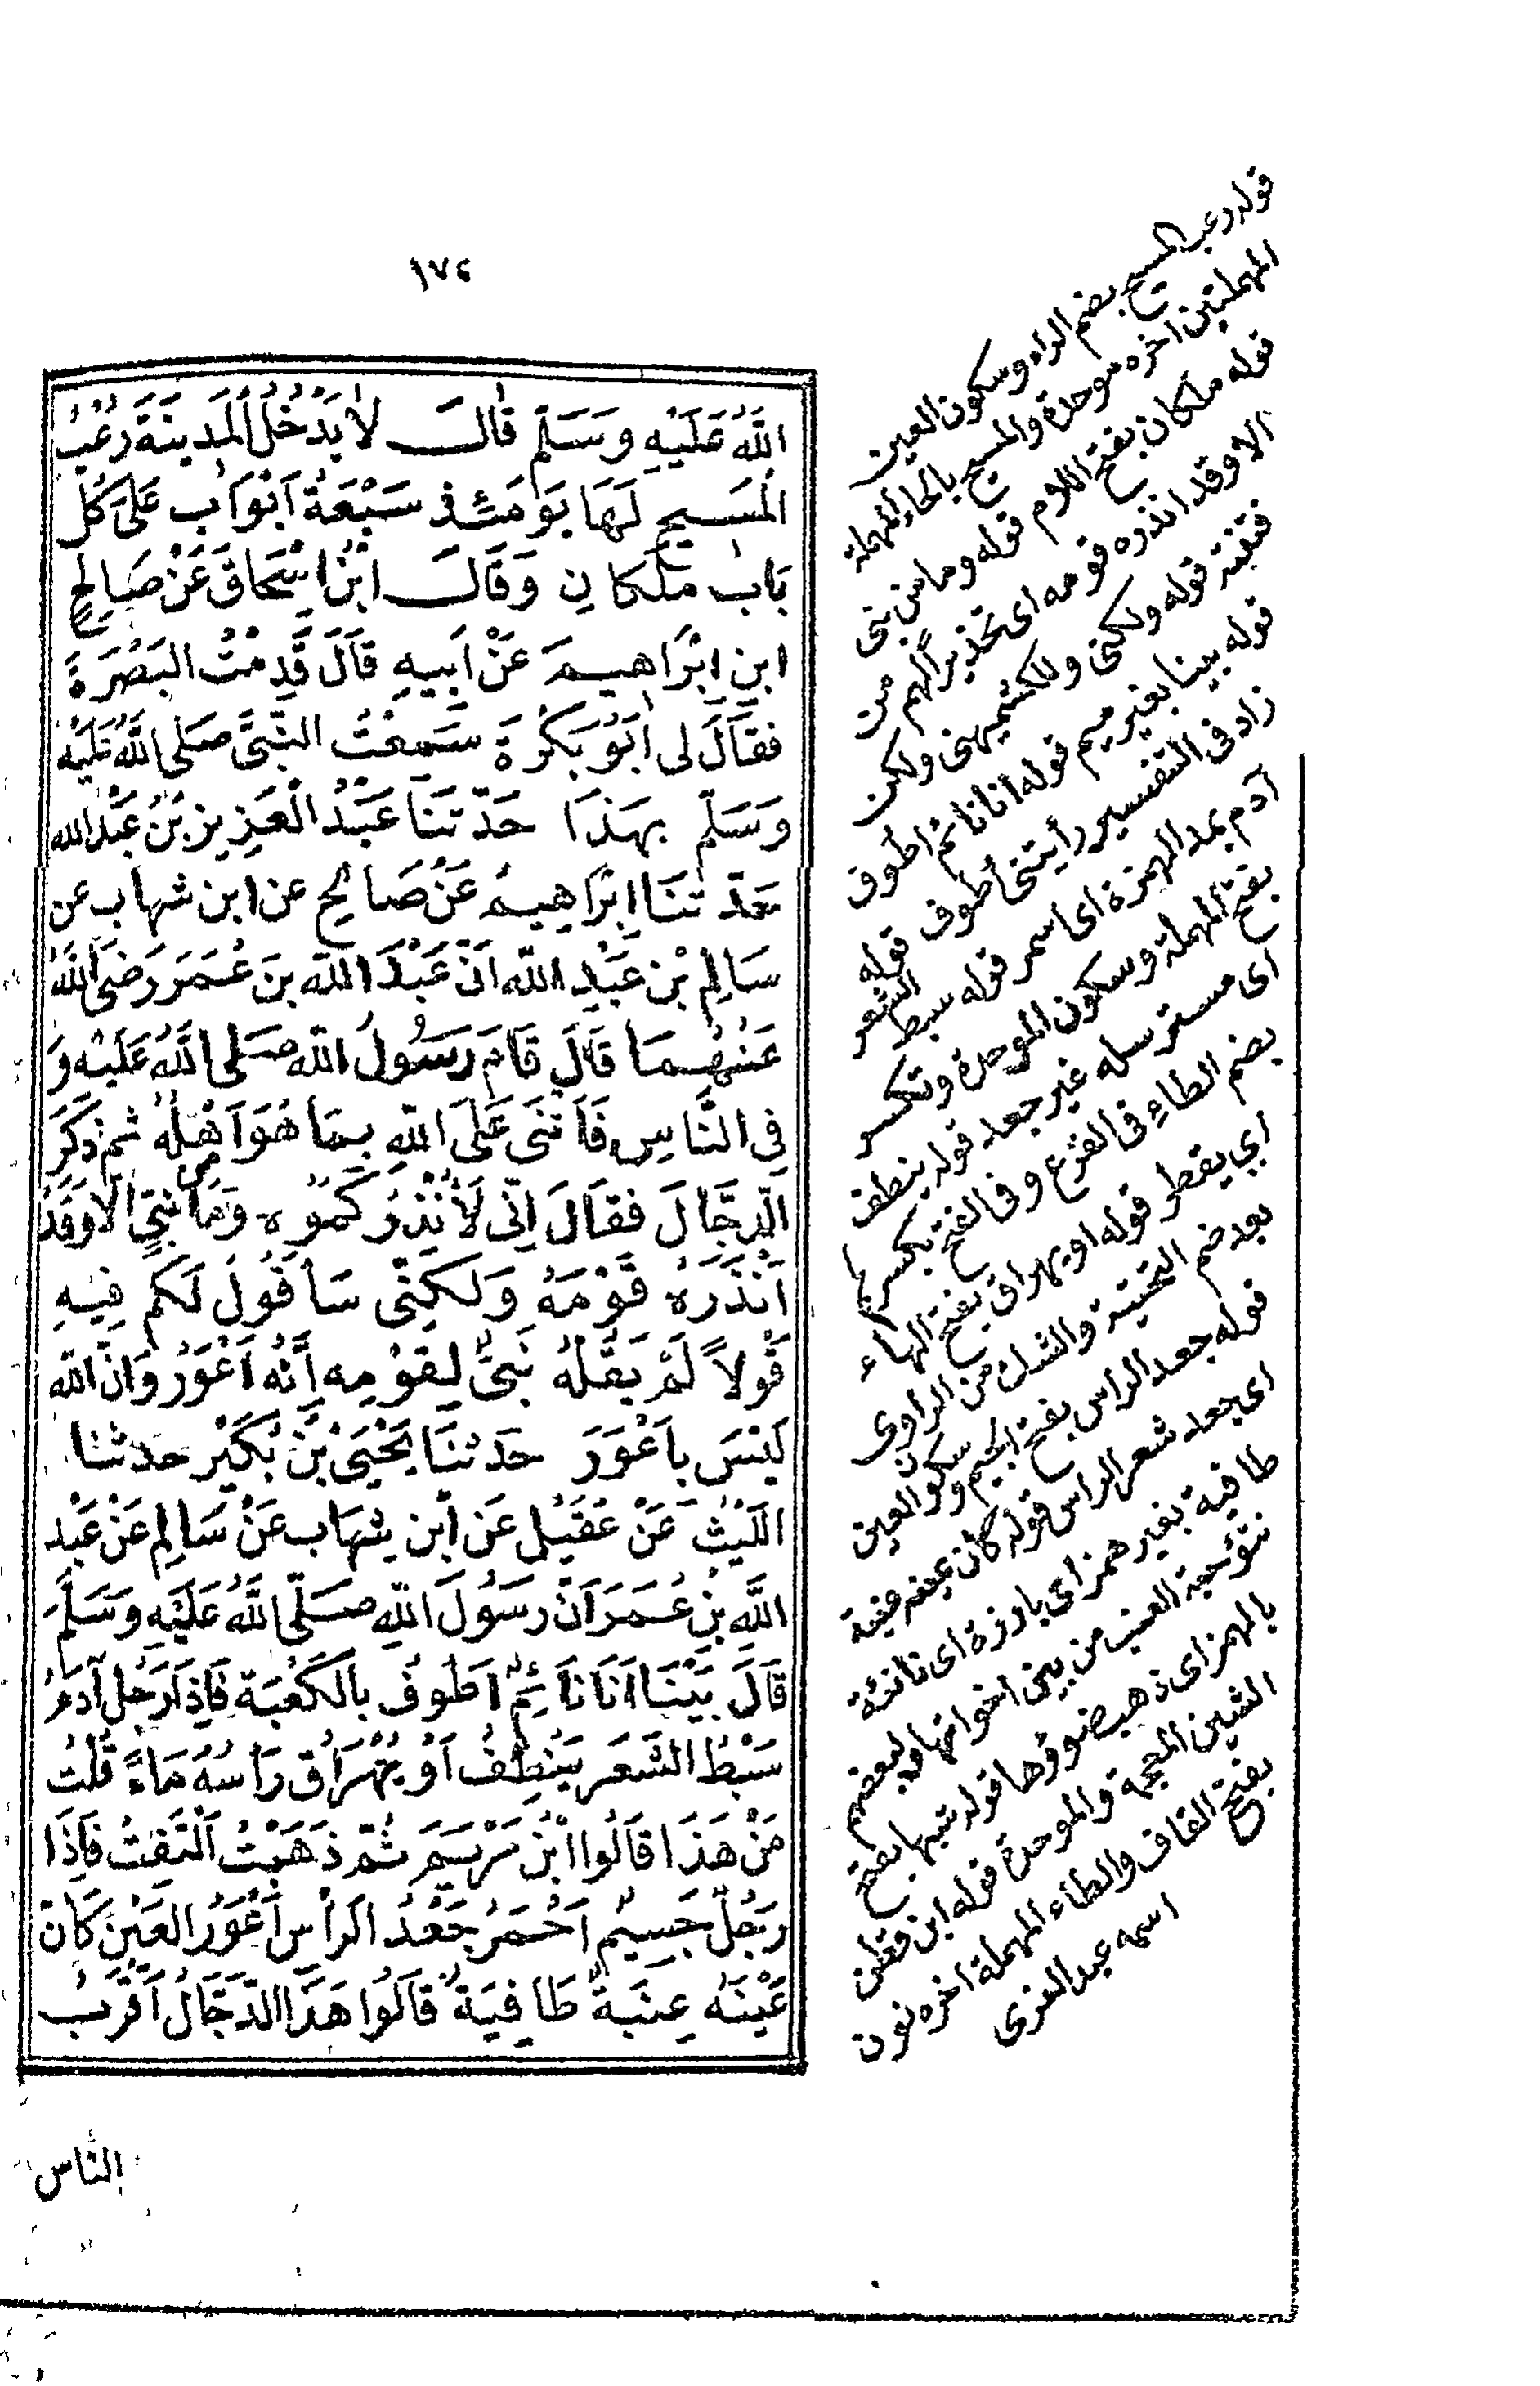 ١٧٤
اللَّهُ عَلَيْهِ وَسَلَّمَ قَالَ لَا يَدْخُلُ الْمَدِينَةَ رُعْبُ
الْمَسِيحِ لَهَا يَوْمَئِذٍ سَبْعَةُ أَبْوَابٍ عَلَى كُلِّ
بَابٍ مَلَكَانِ وَقَالَ ابْنُ إِسْحَاقَ عَنْ صَالِحِ
ابْنِ إِبْرَاهِيمَ عَنْ أَبِيهِ قَالَ قَدِمْتُ الْبَصْرَةَ
فَقَالَ لِي أَبُو بَكْرَةَ سَمِعْتُ النَّبِيَّ صَلَّى اللَّهُ عَلَيْهِ
وَسَلَّمَ بِهَذَا حَدَّثَنَا عَبْدُ الْعَزِيزِ بْنُ عَبْدِ اللَّهِ
حَدَّثَنَا إِبْرَاهِيمُ عَنْ صَالِحٍ عن ابن شهاب عن
سَالِمِ بْنِ عَبْدِ اللَّهِ أَنَّ عَبْدَ اللَّهِ بنَ عُمَرَ رَضِيَ اللَّهُ
عَنْهُمَا قَالَ قَامَ رَسُولُ اللَّهِ صَلَّى اللَّهُ عَلَيْهِ وَ
فِي النَّاسِ فَأَثْنَى عَلَى اللَّهِ بِمَا هُوَ أَهْلُهُ ثُمَّ ذَكَرَ
الدَّجَّالَ فَقَالَ إِنِّي لَأُنْذِرُكُمُوهُ وَمَا مِنْ نَبِيٍّ إلا وَقَدْ
أَنْذَرَهُ قَوْمَهُ وَلَكِنِّي سَأَقُولُ لَكُمْ فِيهِ
قَوْلاً لَمْ يَقُلْهُ نَبِيٌّ لِقَوْمِهِ أَنَّهُ أَعْوَرُ وَأنَّ اللَّهَ
لَيْسَ بِأَعْوَرَ حَدَّثَنَا يَحْيَى بْنُ بُكَيْرٍ حدثنا
اللَّيْثُ عَنْ عُقَيْلٍ عَنِ ابْنِ شِهَابٍ عَنْ سَالِمٍ عَنْ عَبْدِ
اللَّهِ بْنِ عُمَرَ أَنَّ رَسُولَ اللَّهِ صَلَّى اللَّهُ عَلَيْهِ وَسَلَّمَ
قَالَ بَيْنَا أَنَا نَائِمٌ أَطُوفُ بِالْكَعْبَةِ فَإِذَا رَجُلٌ آدَمُ
سَبْطُ الشَّعَرِ يَنْطِفُ أَوْ يُهَرَاقُ رَأْسُهُ مَاءً قُلْتُ
مَنْ هَذَا قَالُوا ابْنُ مَرْيَمَ ثُمَّ ذَهَبْتُ أَلْتَفِتُ فَإِذَا
رَجُلٌ جَسِيمٌ أَحْمَرُ جَعْدُ الرَّأْسِ أَعْوَرُ الْعَيْنِ كَأَنَّ
عَيْنَهُ عِنَبَةٌ طَافِيَةٌ قَالُوا هَذَا الدَّجَّالُ أَقْرَبُ
الناس
قوله رعب المسيح بضم الراء وسكون العين
المهملتين اخره موحدة والمسيح بالحاء المهملة
قوله ملكان بفتح اللام قوله وما من نبي
الا وقد انذره قومه اى تحذيراً لهم من
فتنته قوله ولكنى وللكشميهنى ولكن
قوله بينا بغير ميم قوله انا نائم اطوف
زاد فى التفسير رأيتنى أطوف قوله
آدم بمد الهمزة اى اسمر قوله سبط الشعر
بفتح المهملة وسكون الموحدة وتكسر
اى مسترسله غير جعد قوله ينطف
بضم الطاء فى الفرع وفى الفتح بكسرها
اي يقطر قوله او يهراق بفتح الهاء
بعد ضم التحتية والشك من الراوى
قوله جعد الراس بفتح الجيم وسكون العين
اى جعد شعر الراس قوله كأن عينه عنبة
طافية بغير همز اى بارزة اى ناتئة
نتؤ حبة العنب من بين اخواتها ولبعضهم
بالهمز اى ذهب ضوؤها قوله شبها بفتح
الشين المعجمة والموحدة قوله ابن قطن
بفتح القاف والطاء المهملة اخره نون
اسمه عبد العزى